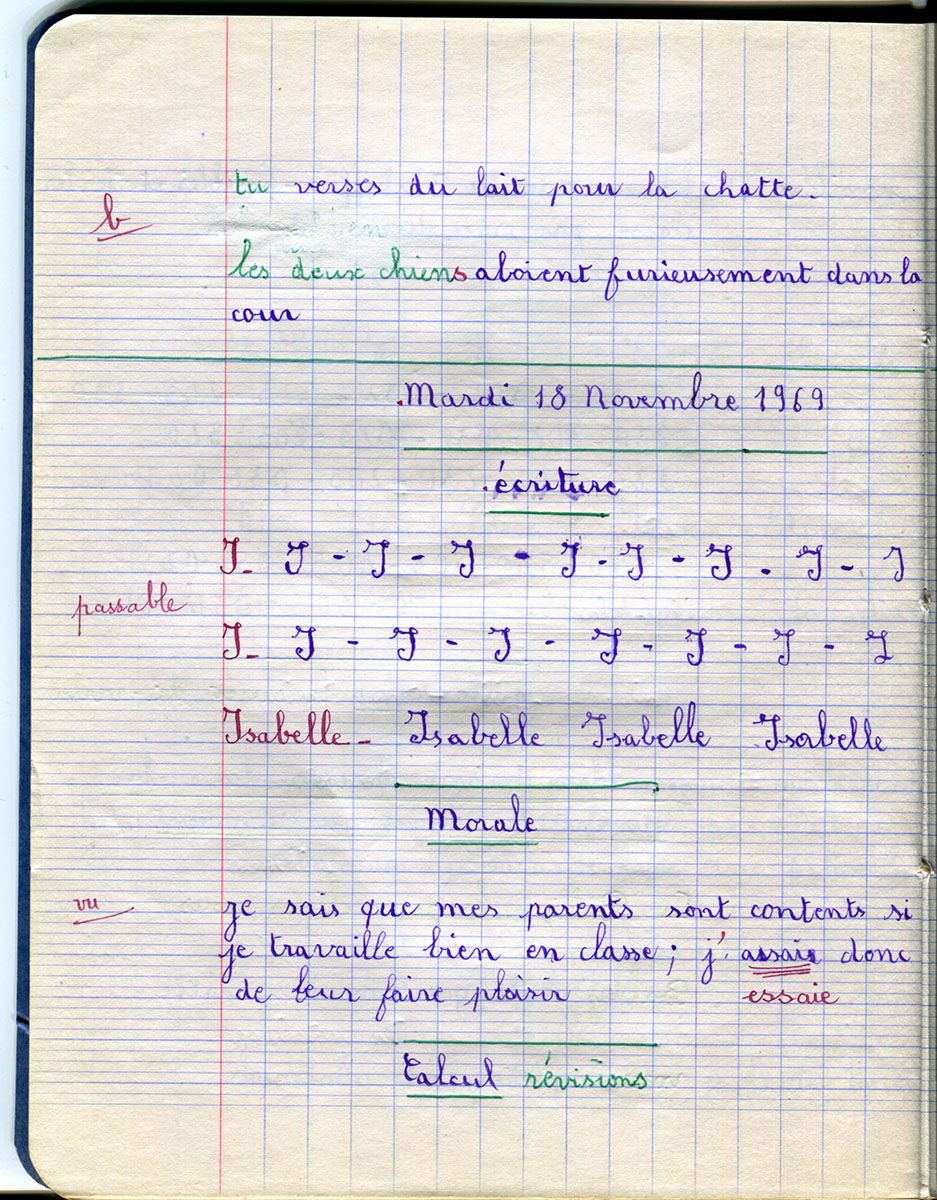 tu verses du lait pour la chatte.
b
les deux chiens aboient furieusement dans la
cour
.Mardi 18 Novembre 1969
.écriture
I_ I - I - I - I - I - I - I - I
passable
I_ I - I - I - I - I - I - I
Isabelle_ Isabelle Isabelle Isabelle
Morale
vu
je sais que mes parents sont contents si
je travaille bien en classe ; j' assais donc
essaie
de leur faire plaisir
Calcul révisions